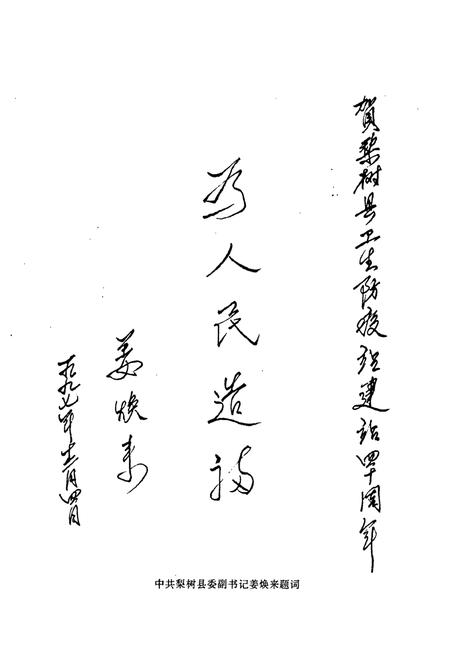 贺梨树县卫生防疫站建站四十周年
为人民造福
姜焕来
一九九七年十二月四日
中共梨树县委副书记姜焕来题词